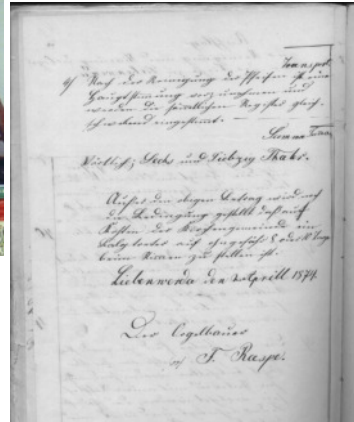 Transport
9) Nach der Reinigung der Pfeifen ist eine
Hauptstimmung vorzunehmen und
werden die sämtlichen Register gleich-
schwebend eingestimmt. —
Summa
Wörtlich; Sechs und Siebzig Thalr.
Außer dem obigen Betrag wird noch
die Bedingung gestellt daß auf
Kosten der Kirchengemeinde ein
auf ungefähr 8 oder
beim zu stellen ist.
Liebenwerda den Aprill 1874.
Der Orgelbauer
T. Raspe.